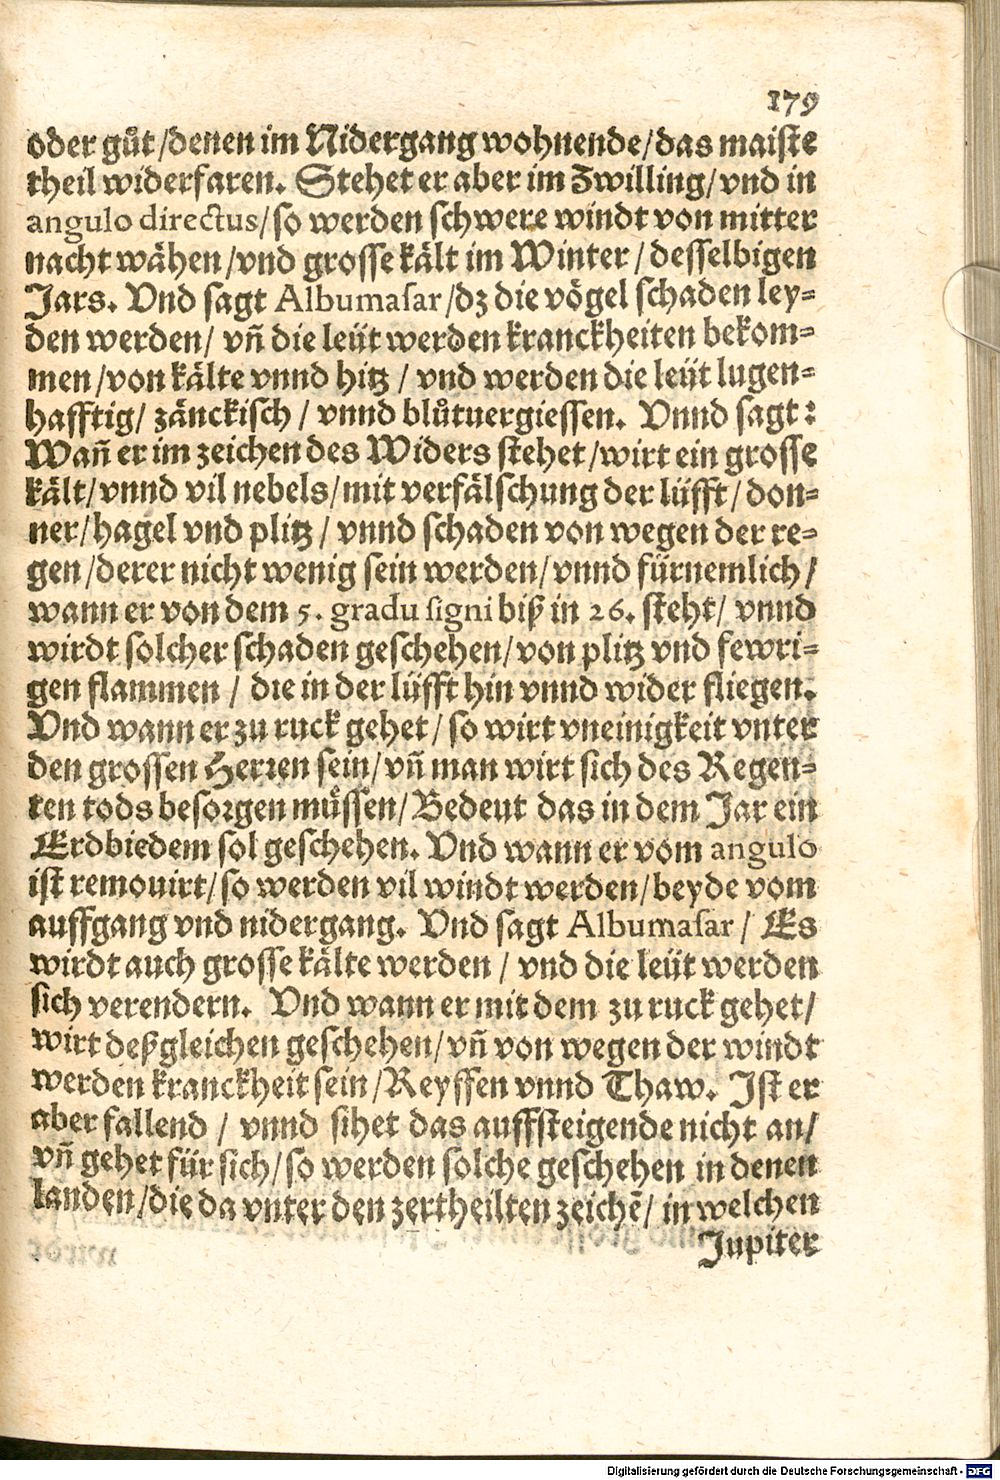 179
oder gůt/denen im Nidergang wohnende/das maiste
theil widerfaren. Stehet er aber im Zwilling/vnd in
angulo directus/so werden schwere windt von mitter
nacht wähen/vnd grosse kält im Winter/desselbigen
Jars. Vnd sagt Albumasar/dz die vögel schaden ley=
den werden/ vñ die leüt werden kranckheiten bekom=
men/von kälte vnnd hitz / vnd werden die leüt lugen=
hafftig/ zänckisch / vnnd blůtuergiessen. Vnnd sagt:
Wañ er im zeichen des Widers stehet/wirt ein grosse
kält/vnnd vil nebels/mit verfälschung der lüfft/don=
ner/hagel vnd plitz / vnnd schaden von wegen der re=
gen/derer nicht wenig sein werden/vnnd fürnemlich/
wann er von dem 5. gradu signi biß in 26. steht/ vnnd
wirdt solcher schaden geschehen/von plitz vnd fewri=
gen flammen / die in der lüfft hin vnnd wider fliegen.
Vnd wann er zu ruck gehet/so wirt vneinigkeit vnter
den grossen Herren sein/vñ man wirt sich des Regen=
ten tods besorgen müssen/Bedeut das in dem Jar ein
Erdbiedem sol geschehen. Vnd wann er vom angulo
ist remouirt/so werden vil windt werden/beyde vom
auffgang vnd nidergang. Vnd sagt Albumasar/ Es
wirdt auch grosse kälte werden / vnd die leüt werden
sich verendern. Vnd wann er mit dem zu ruck gehet/
wirt deßgleichen geschehen/vñ von wegen der windt
werden kranckheit sein/Reyffen vnnd Thaw. Ist er
aber fallend / vnnd sihet das auffsteigende nicht an/
vñ gehet für sich/so werden solche geschehen in denen
landen/die da vnter den zertheilten zeichẽ/ in welchen
Jupiter
Digitalisierung gefördert durch die Deutsche Forschungsgemeinschaft - DFG